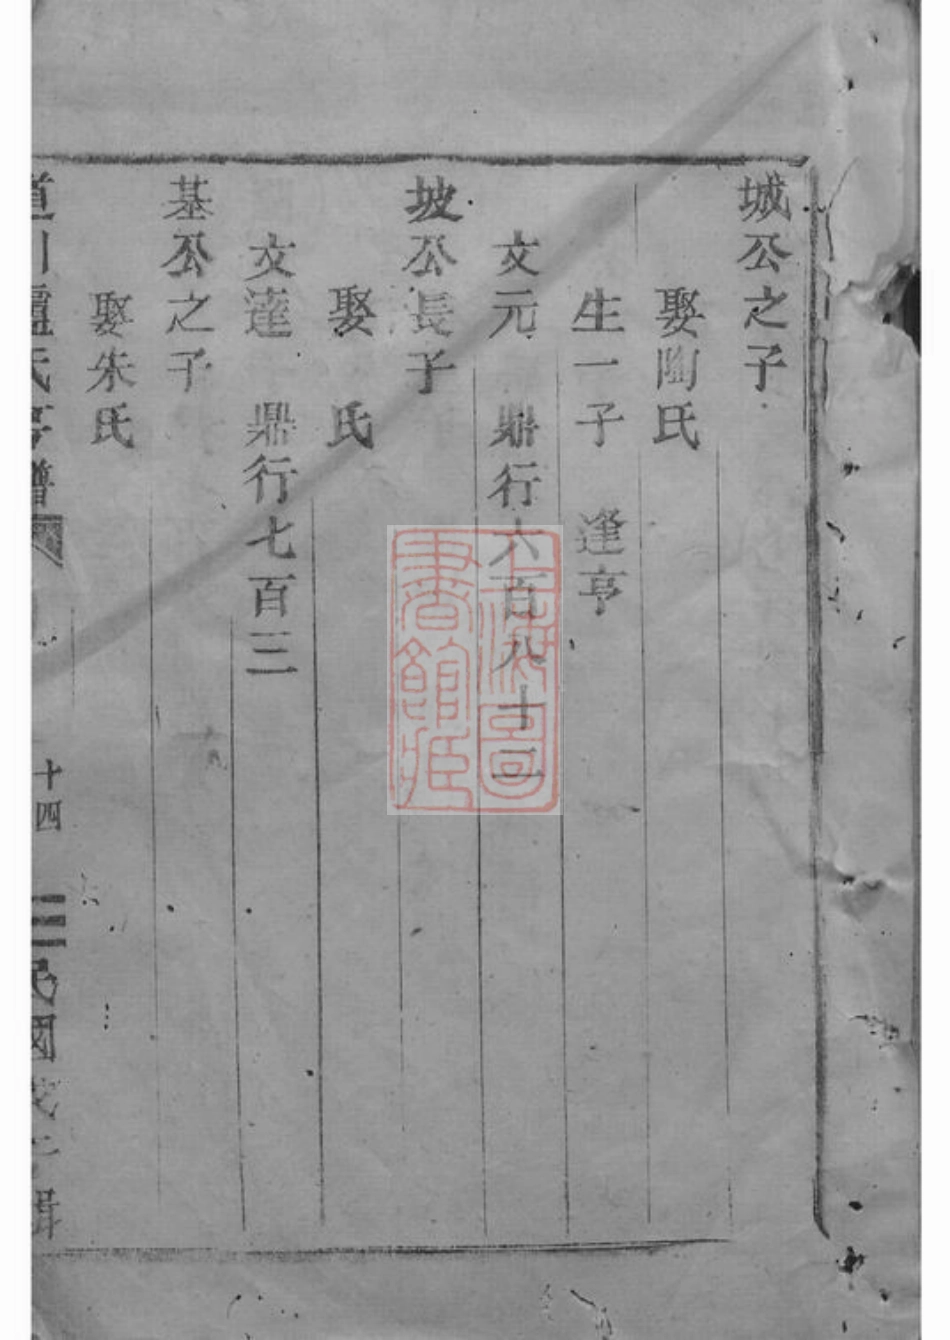 城公之子
娶陶氏
生一子 逢亨
文元 鼎行六百八十二
坡公長子
娶 氏
文達 鼎行七百三
基公之子
娶朱氏
氏
譜
十四
民國
輯
上海圖書館藏